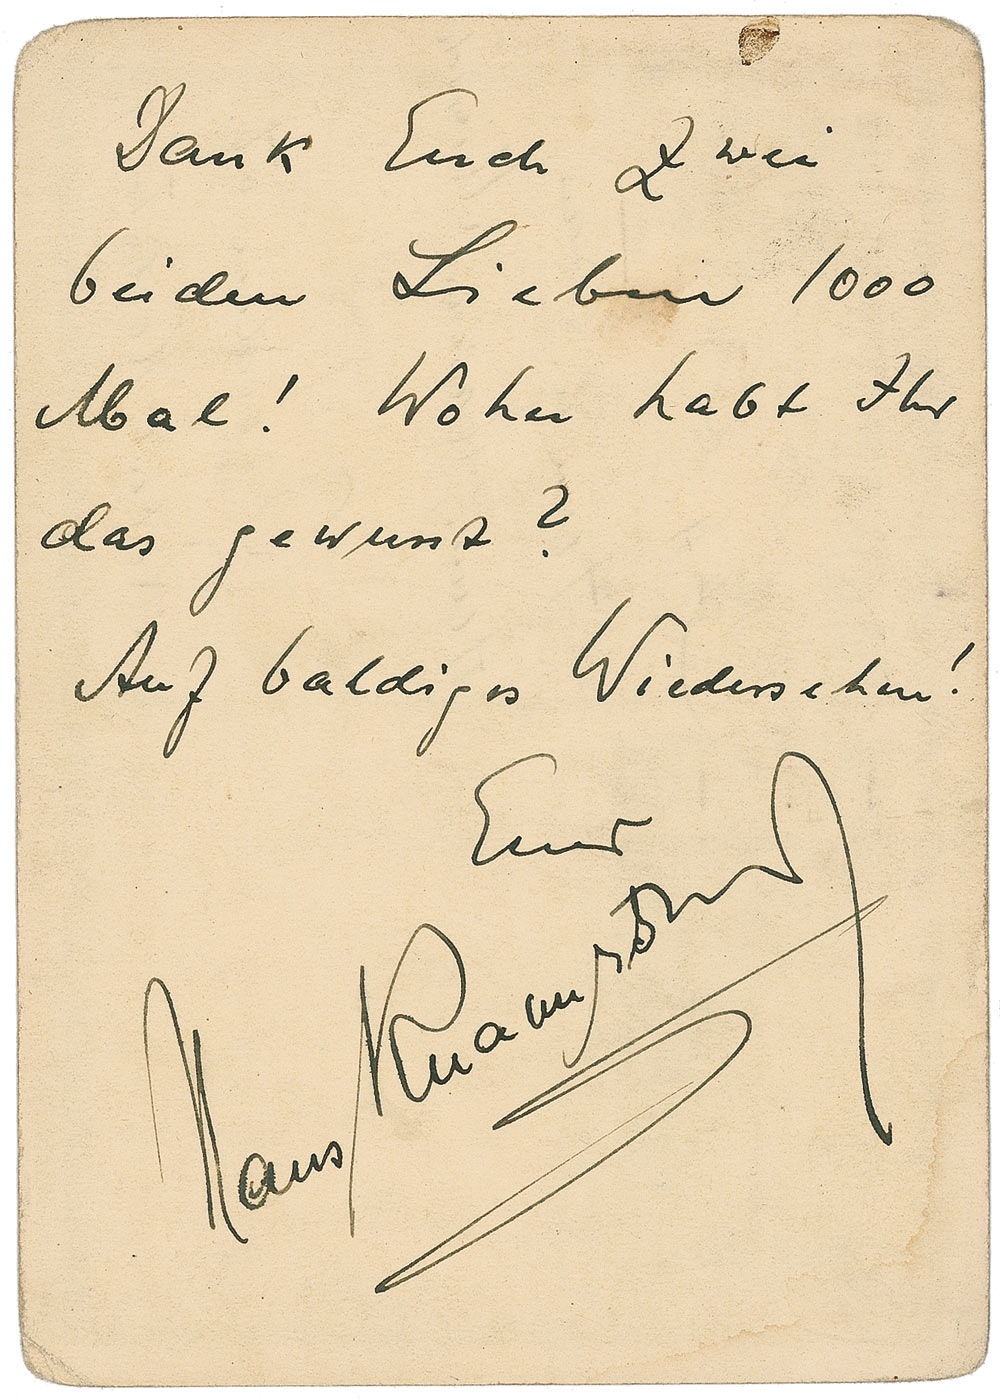 Dank Euch zwei
beiden Lieben 1000
Mal! Woher habt Ihr
das gewusst?
Auf baldiges Wiedersehen!
Euer
Hans Knappertsbusch